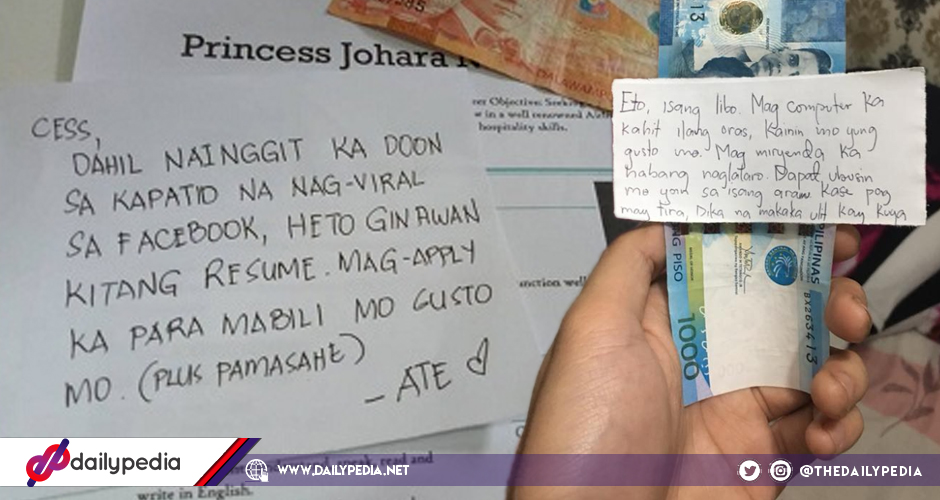 Princess Johara
CESS,
DAHIL NAINGGIT KA DOON
SA KAPATID NA NAG-VIRAL
SA FACEBOOK, HETO GINAWAN
KITANG RESUME. MAG-APPLY
KA PARA MABILI MO GUSTO
MO. (PLUS PAMASAHE)
- ATE
er Objective: Seeking
in a well renowned
hospitality skills.
anction well
speak, read and
write in English.
DALAWAMPU
13
Eto, isang libo. Mag computer ka
kahit ilang oras, kainin mo yung
gusto mo. Mag miryenda ka
habang naglalaro. Dapat ubusin
mo yan sa isang araw kase pag
may tira, Dika na makaka ulit kay kuya
NG PISO
PILIPINAS
BX263413
1000
dailypedia
WWW.DAILYPEDIA.NET
@THEDAILYPEDIA